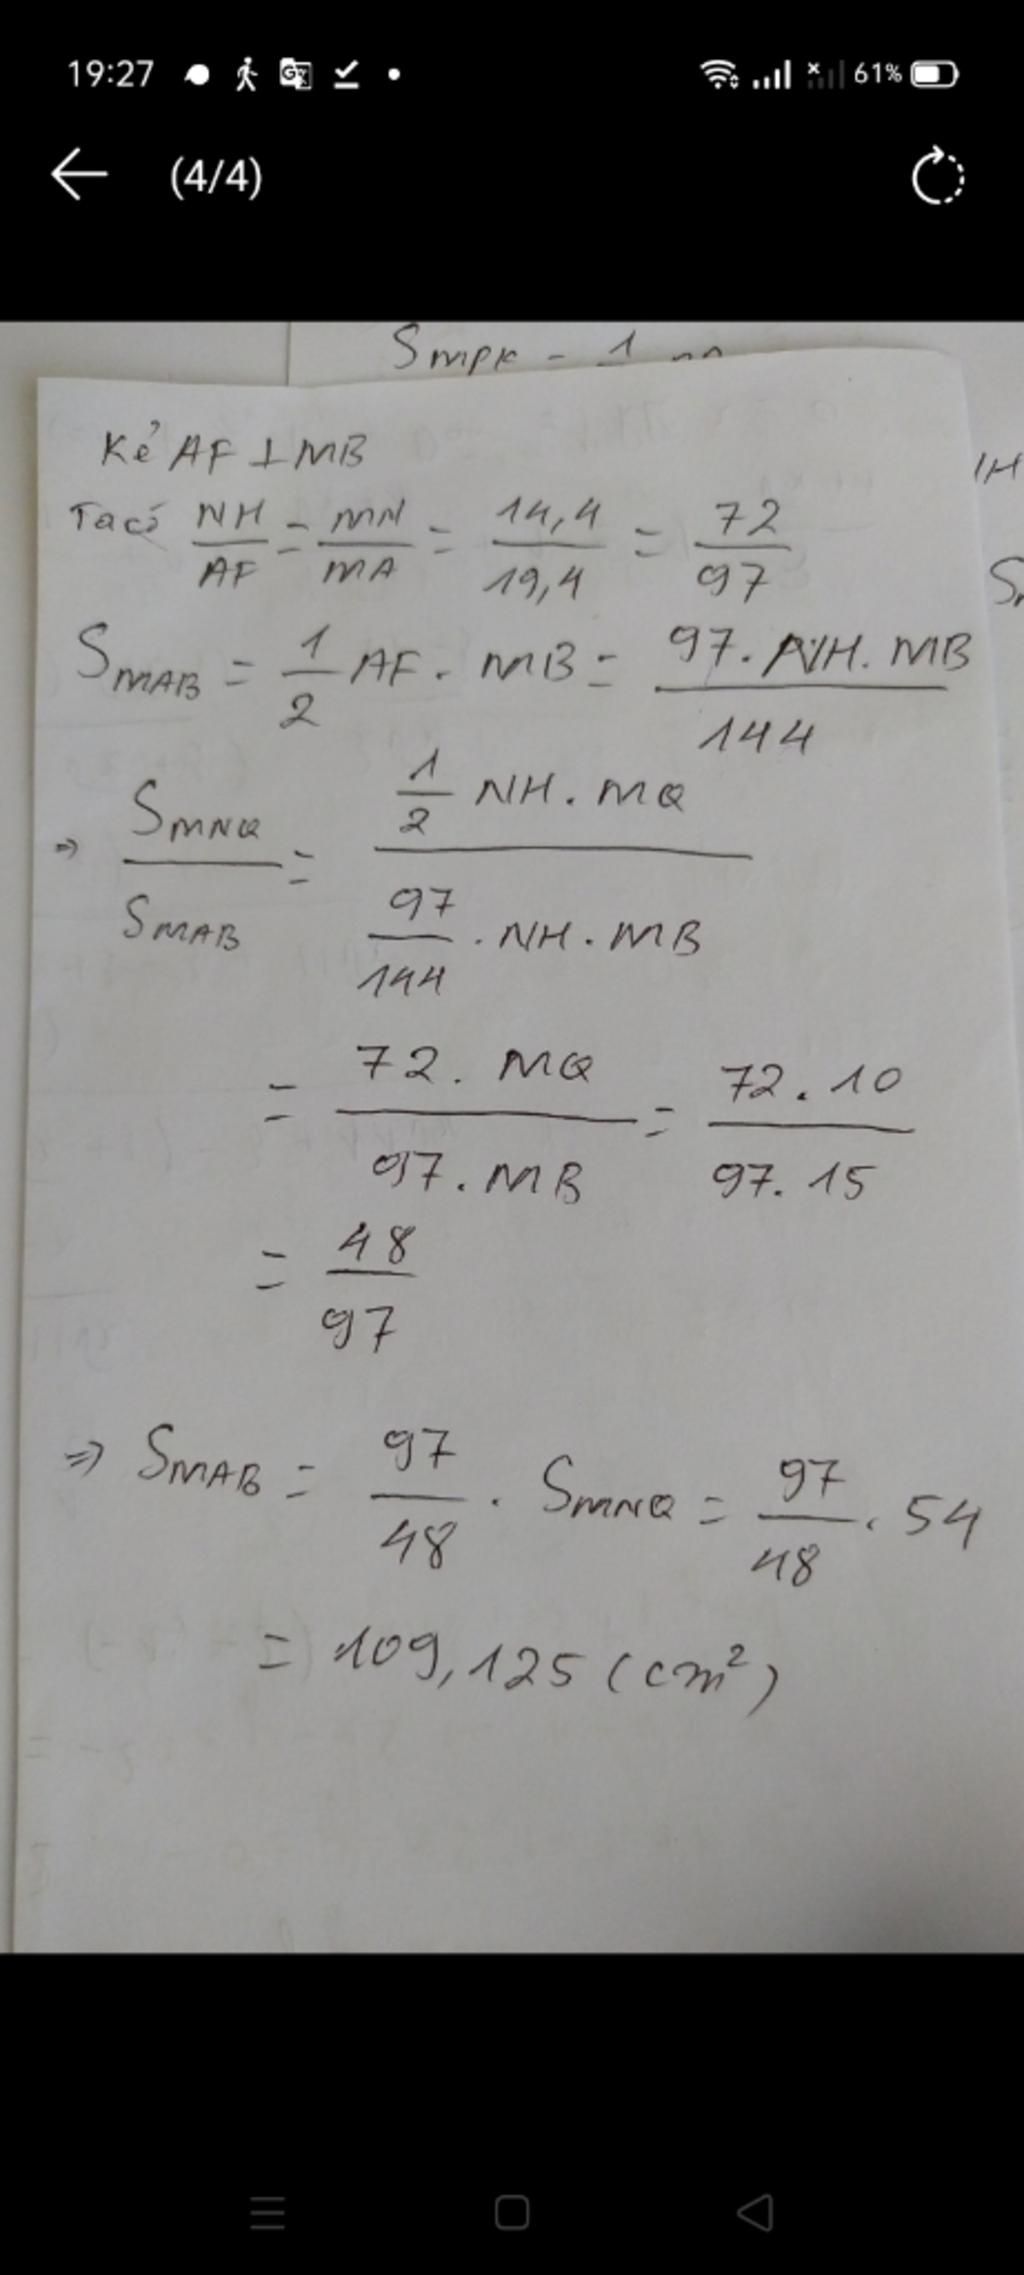 19:27
61%
(4/4)
SMPK = 1
Kẻ AF ⊥ MB
Ta có NH/AF = MN/MA = 14,4/19,4 = 72/97
SMAB = 1/2 AF . MB = 97. NH. MB/144
⇒ SMNQ/SMAB = 1/2 NH . MQ / 97/144 . NH . MB
= 72 . MQ/97 . MB = 72 . 10/97 . 15
= 48/97
⇒ SMAB = 97/48 . SMNQ = 97/48 . 54
= 109,125 (cm²)